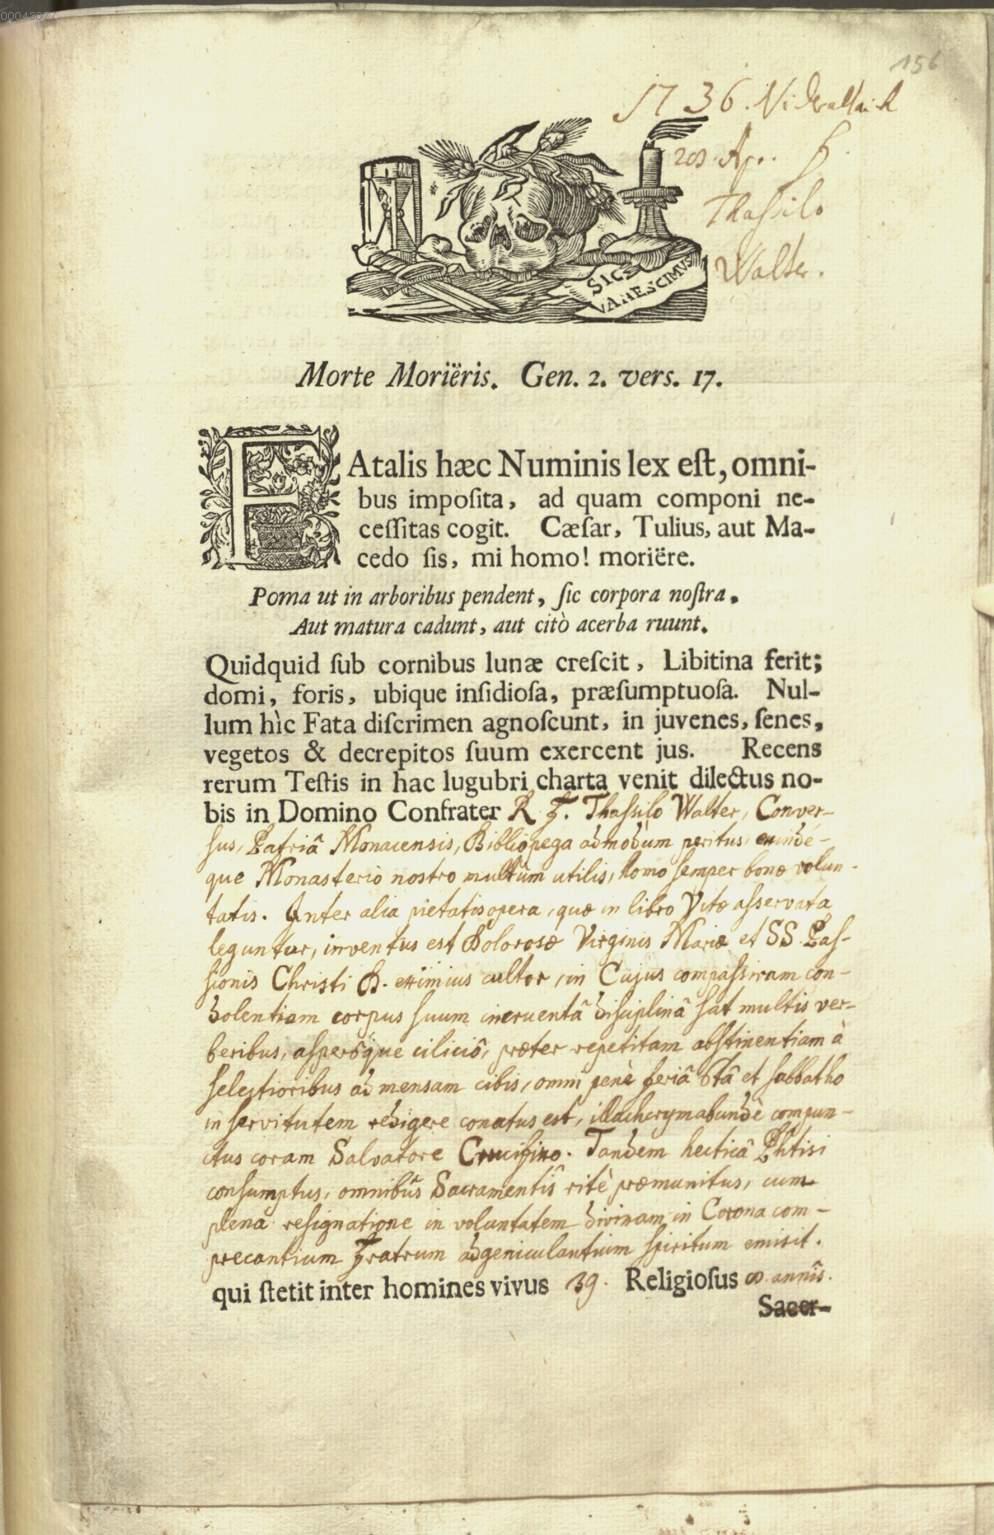 156
1736. Niderallaich
20 Apr. F.
Thassilo
Walter.
SIC EVANESCIMUS
Morte Moriëris. Gen. 2. vers. 17.
FAtalis hæc Numinis lex eſt, omni-
bus impoſita, ad quam componi ne-
ceſſitas cogit. Cæſar, Tulius, aut Ma-
cedo ſis, mi homo! moriëre.
Poma ut in arboribus pendent, ſic corpora noſtra.
Aut matura cadunt, aut citò acerba ruunt.
Quidquid ſub cornibus lunæ creſcit, Libitina ferit;
domi, foris, ubique inſidioſa, præſumptuoſa. Nul-
lum hìc Fata diſcrimen agnoſcunt, in juvenes, ſenes,
vegetos & decrepitos ſuum exercent jus. Recens
rerum Teſtis in hac lugubri charta venit dilectus no-
bis in Domino Confrater R. F. Thaſsilo Walter, Conver-
ſus, Patriâ Monacensis, Bibliopega admodùm peritus, eundé-
que Monasterio nostro multùm utilis, homo ſemper bonæ volun-
tatis. Inter alia pietatis opera, quæ in libro Vitæ aſservata
leguntur, inventus est Dolorosæ Virginis Mariæ et SS. Paſ-
ſionis Christi D. eximius cultor, in Cujus compaſsivam con-
dolentiam corpus ſuum incruentâ diſciplinâ ſat multis ver-
beribus, aſperóque ciliciô, præter repetitam abſtinentiam à
ſelectioribus ad mensam cibis, omni penè feriâ 6tâ et ſabbatho
in ſervitutem redigere conatus est, illachrymabundè compun-
ctus coram Salvatore Crucifixo. Tandem hecticâ Phtisi
conſumptus, omnibûs Sacramentîs ritè præmunitus, cum
plenâ reſignatione in voluntatem divinam in Corona com-
precantium Fratrum adgeniculantium ſpiritum emisit.
qui ſtetit inter homines vivus 39. Religioſus 8 annîs.
Sacer-